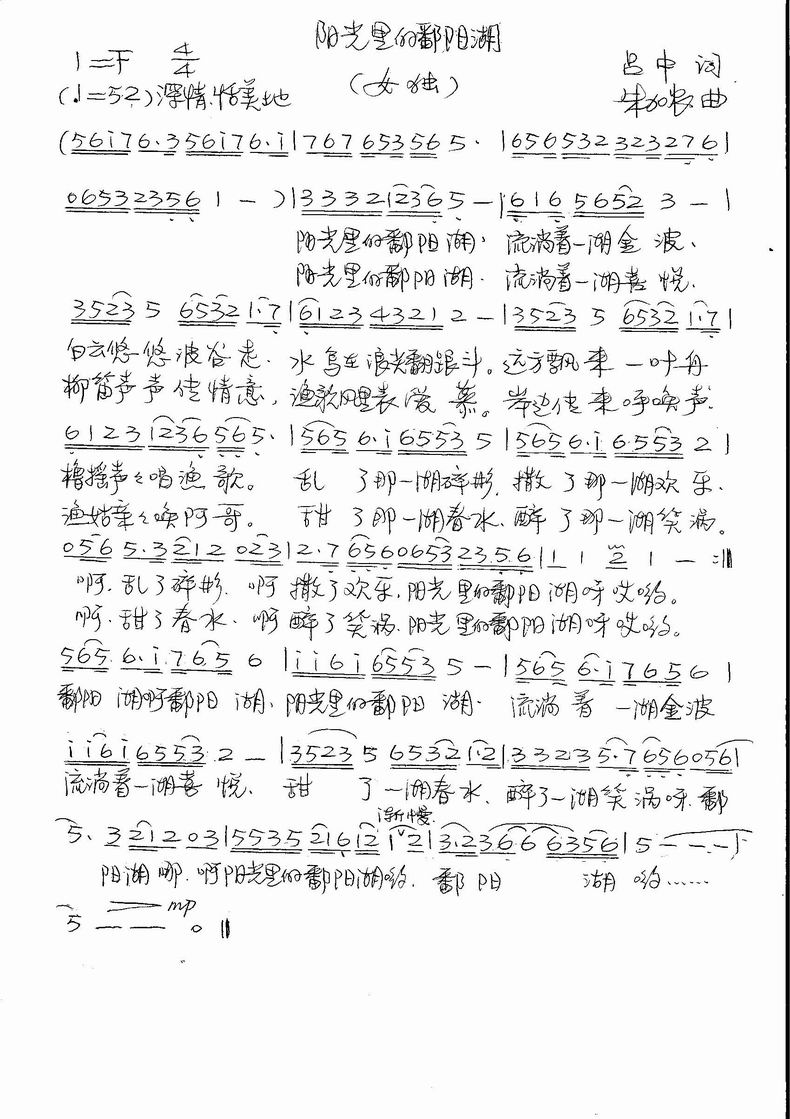 阳光里的鄱阳湖
1=F 4/4 (女独) 吕中 词
(♩=52)深情、恬美地 朱加农 曲
(56i76·356i76·i|767653565·|656532323276|
06532356 1 -)|33321236 5 -|6165652 3 -|
阳光里的鄱阳湖、流淌着一湖金波、
阳光里的鄱阳湖、流淌着一湖喜悦、
3523 5 6532 1·7|6123 4321 2 -|3523 5 6532 1·7|
白云悠悠波谷走、水鸟在浪尖翻跟斗。远方飘来一叶舟
柳笛声声传情意，渔歌风里表爱慕。岸边传来呼唤声
6123 1236 565·|565 6·i 6553 5|5656·i 6·553 2|
橹摇声々唱渔歌。乱了那一湖碎影，撒了那一湖欢乐、
渔姑辈々唤阿哥。甜了那一湖春水、醉了那一湖笑涡。
056 5·3 212 023|2·7 656 0653 23·5·6|1 1 2 1 - :‖
啊、乱了碎影、啊撒了欢乐、阳光里的鄱阳湖呀哎哟。
啊、甜了春水、啊醉了笑涡、阳光里的鄱阳湖呀哎哟。
565 6·i·76·5 6|ii6i 6553 5 -|565 6·i 765 6|
鄱阳湖啊鄱阳湖、阳光里的鄱阳湖、流淌着一湖金波
ii6i 6553·2 -|3523 5 6532 1·2|33235·7 656 056|
流淌着一湖喜悦、甜了一湖春水、醉了一湖笑涡呀、鄱
渐慢
5· 3 212 03|5535 216 12 1 2|3·236·6 6356|5 - - -|
阳湖哪、啊阳光里的鄱阳湖哟、鄱阳湖哟……
mp
5 - - 0‖